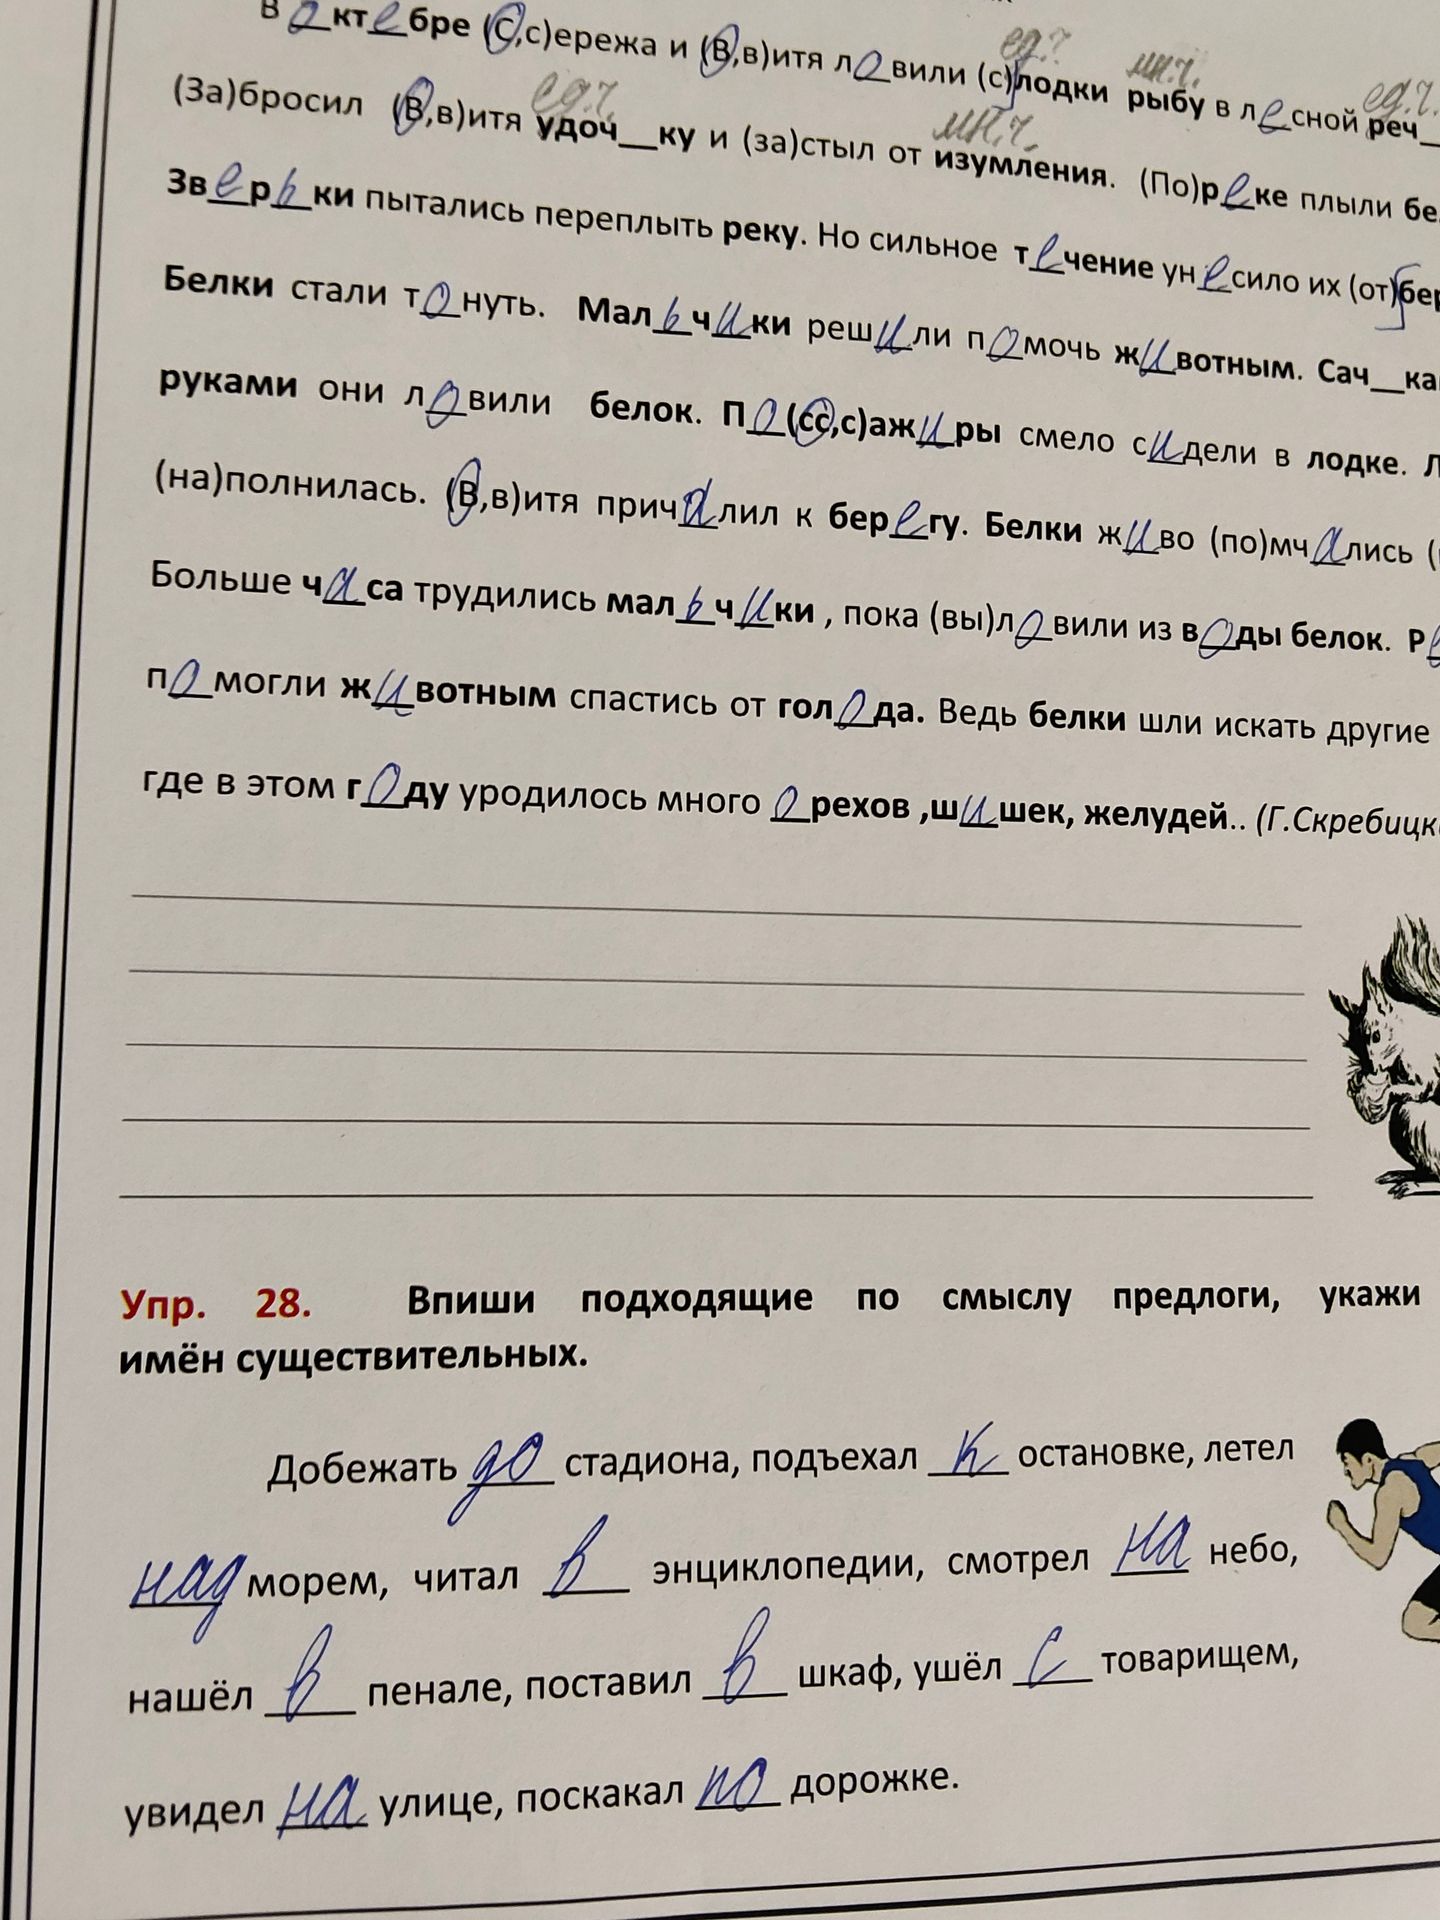 В октебре (С,с)ережа и (В,в)итя ловили (с)лодки рыбу в лесной реч_
ед.ч мн.ч. ед.ч.
(За)бросил (В,в)итя удоч__ку и (за)стыл от изумления. (По)реке плыли бе
ед.ч мн.ч.
Зверьки пытались переплыть реку. Но сильное течение унесило их (от)бер
Белки стали тонуть. Мальчики решили помочь животным. Сач__ка
руками они ловили белок. По(сс,с)ажиры смело сидели в лодке.
(на)полнилась. (В,в)итя причалил к берегу. Белки живо (по)мчались (
Больше часа трудились мальчики , пока (вы)ловили из воды белок. Р
помогли животным спастись от голода. Ведь белки шли искать другие
где в этом году уродилось много орехов ,шишек, желудей.. (Г.Скребицк
Упр. 28. Впиши подходящие по смыслу предлоги, укажи
имён существительных.
Добежать до стадиона, подъехал к остановке, летел
над морем, читал в энциклопедии, смотрел на небо,
нашёл в пенале, поставил в шкаф, ушёл с товарищем,
увидел на улице, поскакал по дорожке.